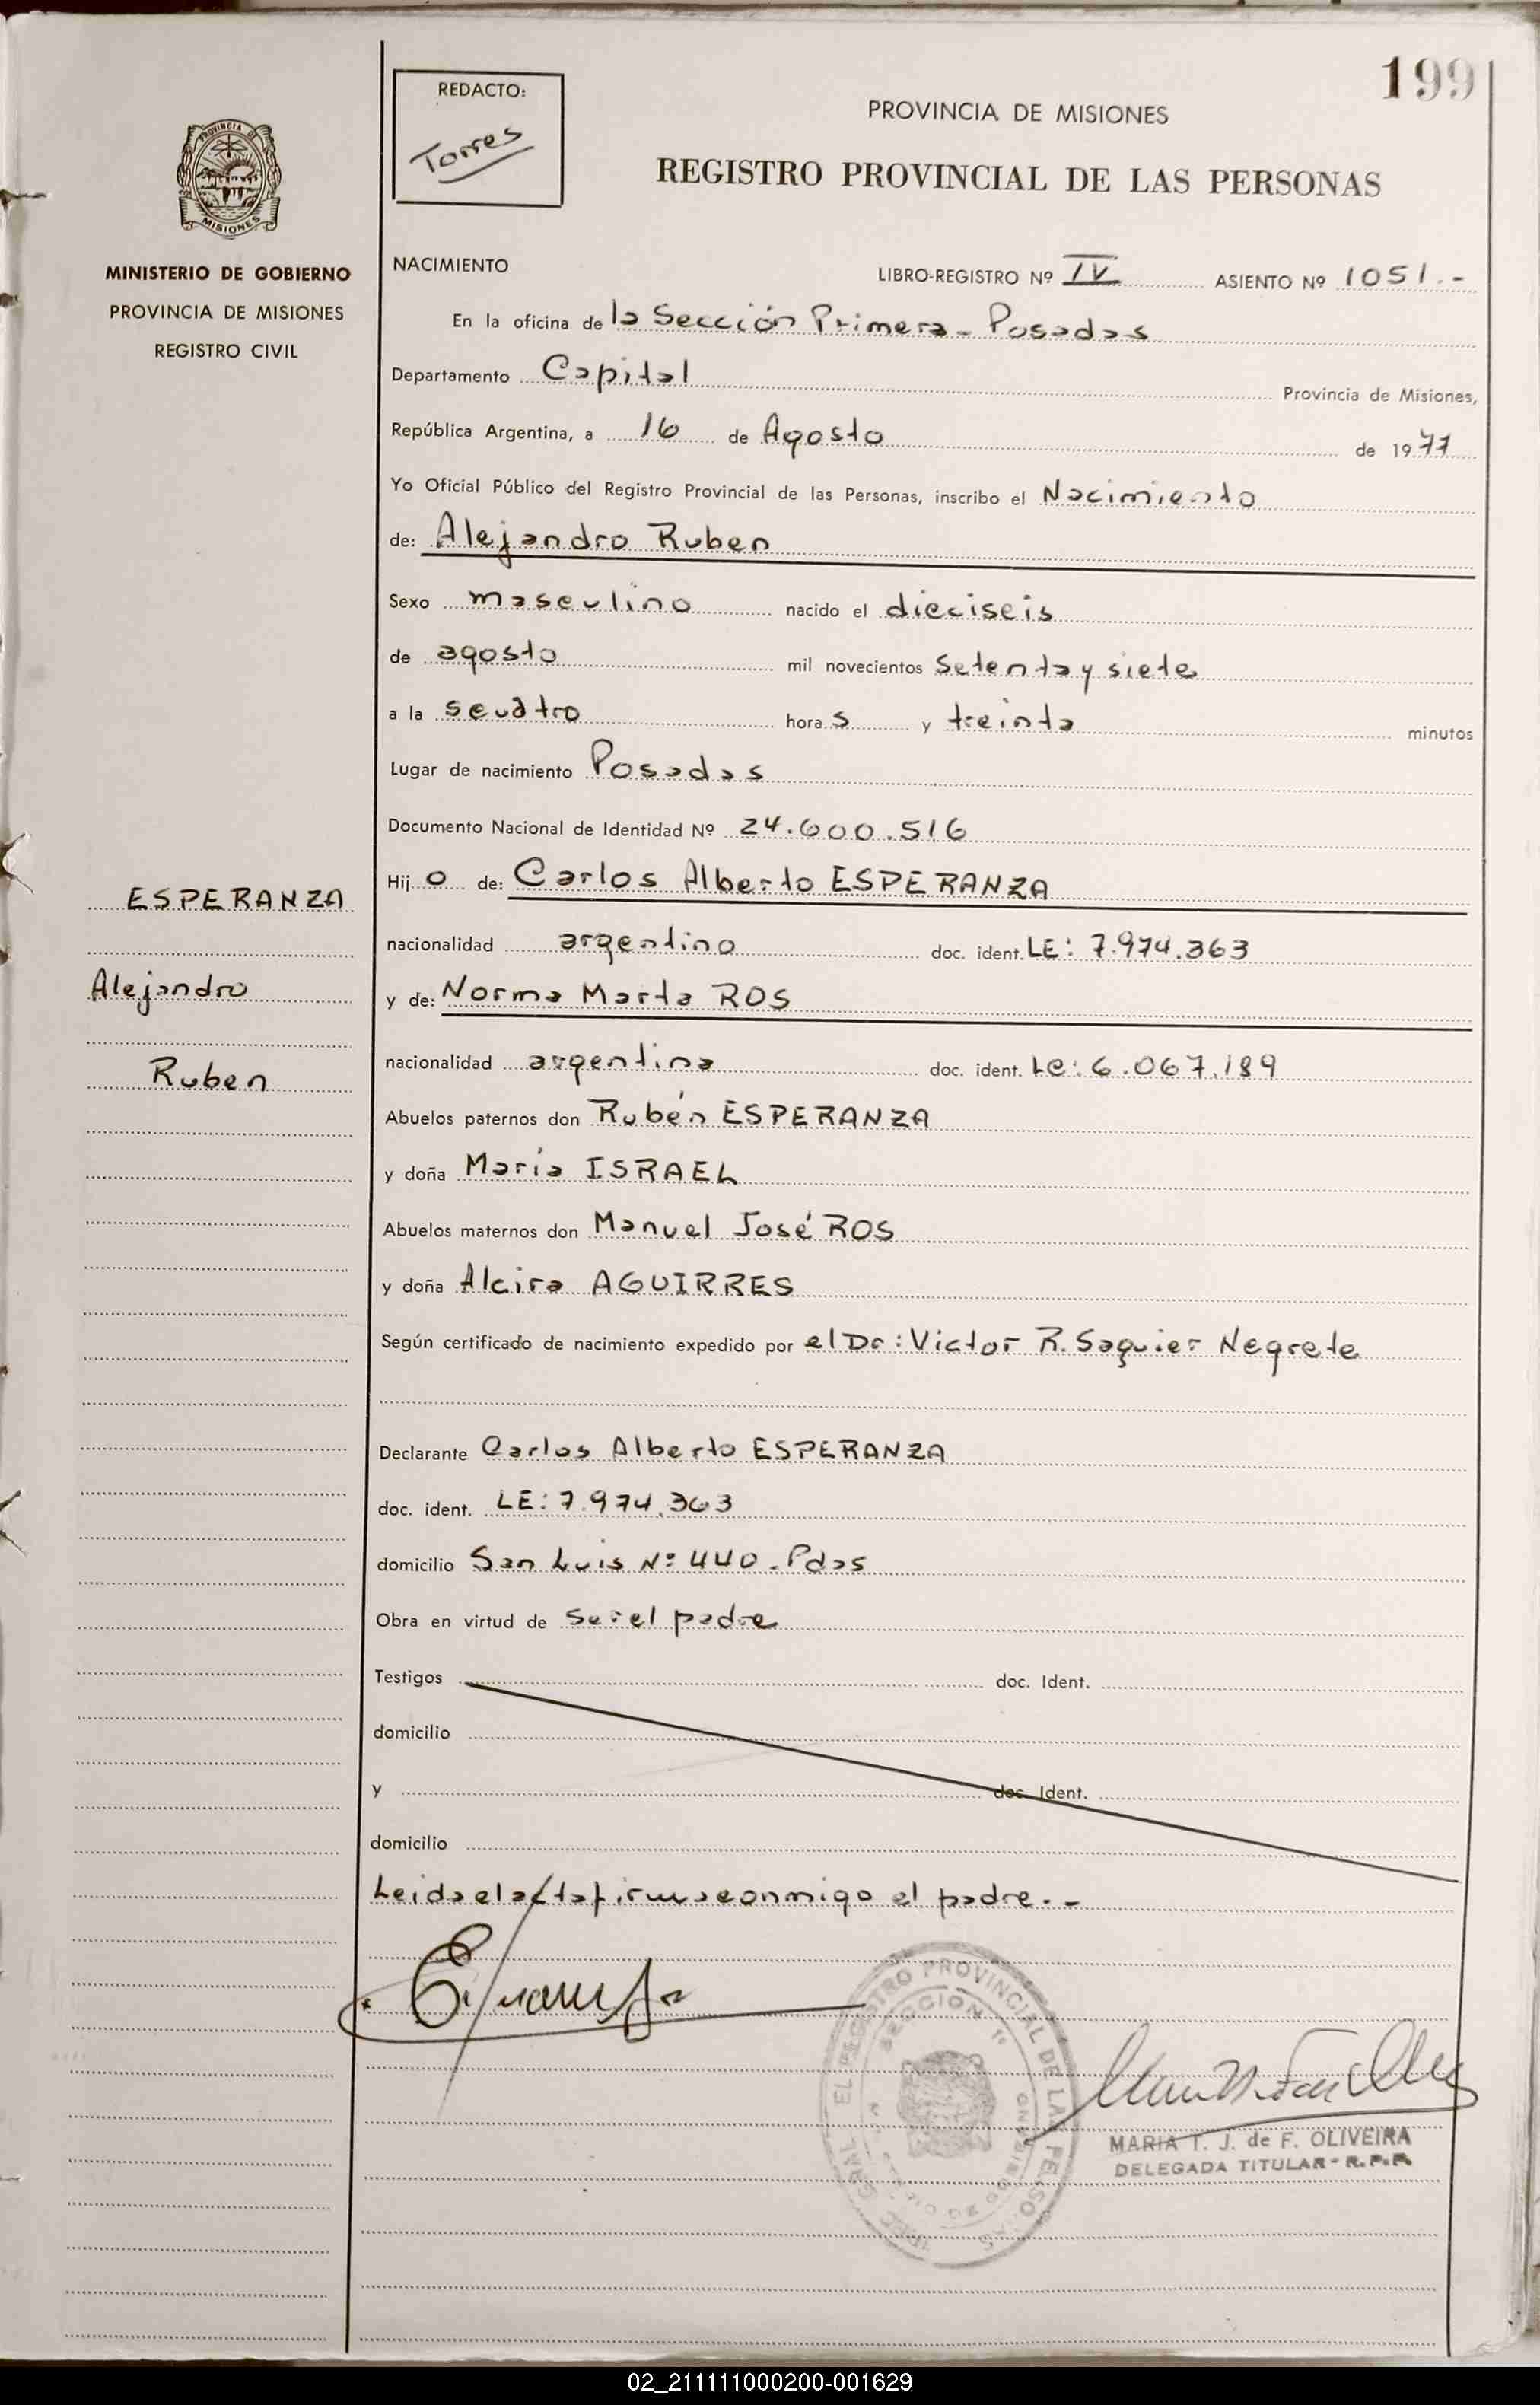 199
REDACTO:
Torres
PROVINCIA DE MISIONES
REGISTRO PROVINCIAL DE LAS PERSONAS
PROVINCIA DE
MISIONES
MINISTERIO DE GOBIERNO
PROVINCIA DE MISIONES
REGISTRO CIVIL
NACIMIENTO LIBRO-REGISTRO Nº IV ASIENTO Nº 1051.-
En la oficina de la Sección Primera - Posadas
Departamento Capital Provincia de Misiones,
República Argentina, a 16 de Agosto de 1977
Yo Oficial Público del Registro Provincial de las Personas, inscribo el Nacimiento
de: Alejandro Ruben
Sexo masculino nacido el dieciseis
de agosto mil novecientos setenta y siete
a la s cuatro hora s y treinta minutos
Lugar de nacimiento Posadas
Documento Nacional de Identidad Nº 24.600.516
Hij o de: Carlos Alberto ESPERANZA
ESPERANZA
nacionalidad argentino doc. ident. LE: 7.974.363
Alejandro
y de: Norma Marta ROS
Ruben
nacionalidad argentina doc. ident. Lc: 6.067.189
Abuelos paternos don Rubén ESPERANZA
y doña María ISRAEL
Abuelos maternos don Manuel José ROS
y doña Alcira AGUIRRES
Según certificado de nacimiento expedido por el Dr: Victor R. Saguier Negrete
Declarante Carlos Alberto ESPERANZA
doc. ident. LE: 7.974.363
domicilio San Luis Nº 440 - Pdas
Obra en virtud de ser el padre
Testigos doc. Ident.
domicilio
y doc. Ident.
domicilio
Leida el acta firma conmigo el padre.-
REGISTRO PROVINCIAL DE LAS PERSONAS
SECCION 1º
MARIA T. J. de F. OLIVEIRA
DELEGADA TITULAR - R.P.P.
02_211111000200-001629